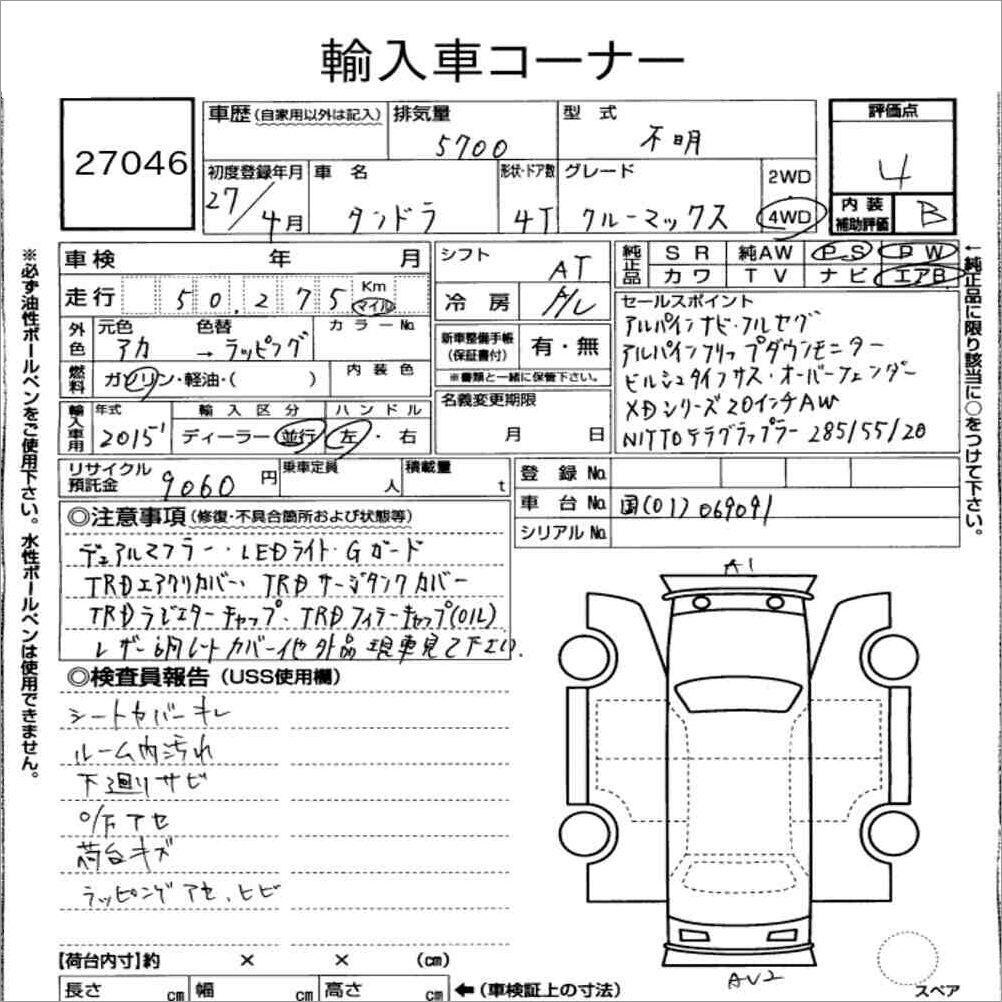 輸入車コーナー
27046
車歴(自家用以外は記入)
排気量
5700
型式
不明
評価点
4
初度登録年月
27/4月
車名
タンドラ
形状・ドア数
4T
グレード
クルーマックス
2WD
4WD
内装補助評価
B
車検 年 月
走行 50,275 Km マイル
外色
元色 色替
アカ → ラッピング
カラーNo.
燃料
ガソリン・軽油・( )
内装色
輸入車用
年式
2015'
輸入区分
ディーラー・並行
ハンドル
左・右
シフト
AT
冷房
A/C
新車整備手帳(保証書付)
有・無
※書類と一緒に保管下さい。
名義変更期限
月 日
純正品
SR 純AW PS PW
カワ TV ナビ エアB
セールスポイント
アルパインナビ・フルセグ
アルパインフリップダウンモニター
ビルシュタインサス・オーバーフェンダー
XDシリーズ20インチAW
NITTOテラグラップラー 285/55/20
リサイクル預託金
9060円
乗車定員 人
積載量 t
登録No.
車台No. 国(01)069091
シリアルNo.
◎注意事項(修復・不具合箇所および状態等)
デュアルマフラー・LEDライト・Gガード
TRDエアクリカバー、TRDサージタンクカバー
TRDラジエターキャップ・TRDフィラーキャップ(OIL)
レザー調シートカバー他 外品 現車見て下さい。
◎検査員報告(USS使用欄)
シートカバーキレ
ルーム内汚れ
下廻りサビ
O/Fアセ
荷台キズ
ラッピングアセ、ヒビ
A1
AV2
スペア
【荷台内寸】約 × × (cm)
長さ cm 幅 cm 高さ cm ←(車検証上の寸法)
※必ず油性ボールペンをご使用下さい。水性ボールペンは使用できません。
←純正品に限り該当に○をつけて下さい。